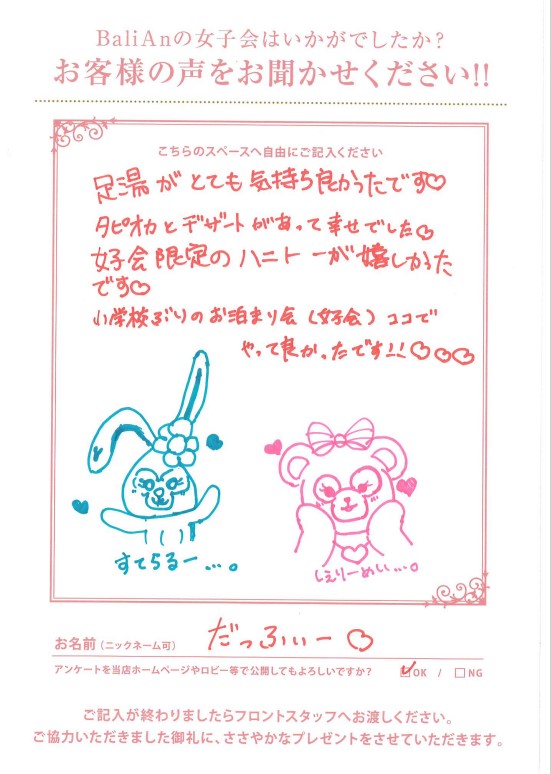 BaliAnの女子会はいかがでしたか？
お客様の声をお聞かせください!!
こちらのスペースへ自由にご記入ください
足湯がとても気持ち良かったです♡
タピオカとデザートがあって幸せでした♡
女子会限定のハニトーが嬉しかった
です♡
小学校ぶりのお泊まり会(女子会)ココで
やって良かったです!!♡♡♡
すてらるー…。
しぇりーめい…。
お名前（ニックネーム可） だっふぃー♡
アンケートを当店ホームページやロビー等で公開してもよろしいですか？ ☑OK / □NG
ご記入が終わりましたらフロントスタッフへお渡しください。
ご協力いただきました御礼に、ささやかなプレゼントをさせていただきます。